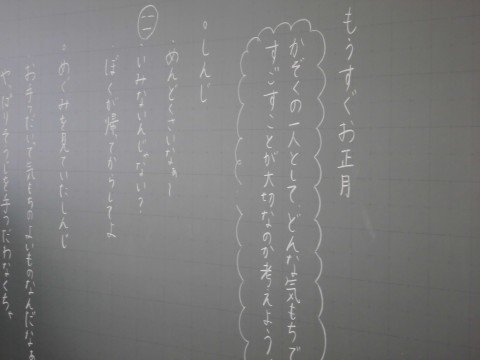 もうすぐお正月
かぞくの一人として、どんな気もちで
すごすことが大切なのか考えよう。
。しんじ
・めんどくさいなぁー
・いみないんじゃない?
ぼくが帰ってからしてよ
。めぐみを見ていたしんじ
お手つだいって気もちのよいものなんだなぁ
やっぱりそうじを手つだわなくちゃ